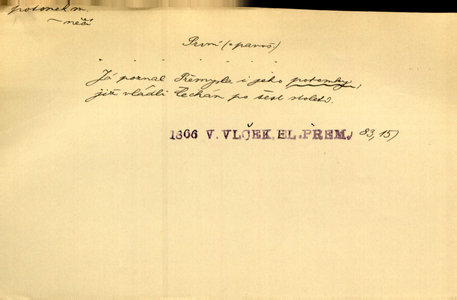 potomek m.
— něčí
První (= pavoš)
Já poznal Přemysla i jeho potomky,
již vládli Čechám po šest století.
1866 V. VLČEK, EL. PŘEM. 83, 15)